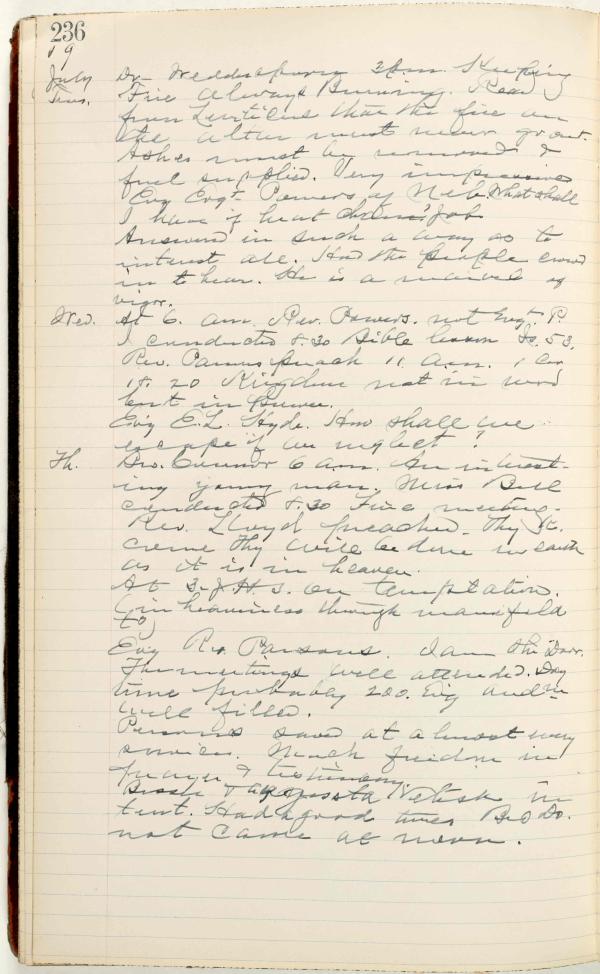 236
19
July Dr. Weddersporn 2 p.m. Keeping
Tues. Fire always Burning. Read
from Leviticus that the fire on
the altar must never go out.
Ashes must be removed &
fuel supplied. Very impressive
Evg Evgt. Powers of Neb. What shall
I have if I
Answered in such a way as to
interest all. Had the people crowd
in to hear. He is a marvel of
vigor.
Wed. At 6. am. Rev. Powers. not Evgt. P.
I conducted 8.30 Bible lesson Is. 53.
Rev. Parsons preach 11 a.m. 1 Cor
4. 20 Kingdom not in word
but in power.
Evg E.L. Hyde. How shall we
escape if we neglect?
Th. Bro. Connor 6 am. An interest-
ing young man. Miss Bell
conducted 8.30 Fine meeting.
Rev. Lloyd preached. Thy K.
come Thy will be done in earth
as it is in heaven.
At 3. J.H.S. on temptation.
(in heaviness through manifold
to)
Evg Rev. Parsons. I am the Door.
The meetings well attended. Day
time probably 200. Evg
well filled.
Persons saved at almost every
service. Much freedom in
prayer & testimony.
Bessie & Augusta in
tent. Had a good time. Bro Do.
not came at noon.